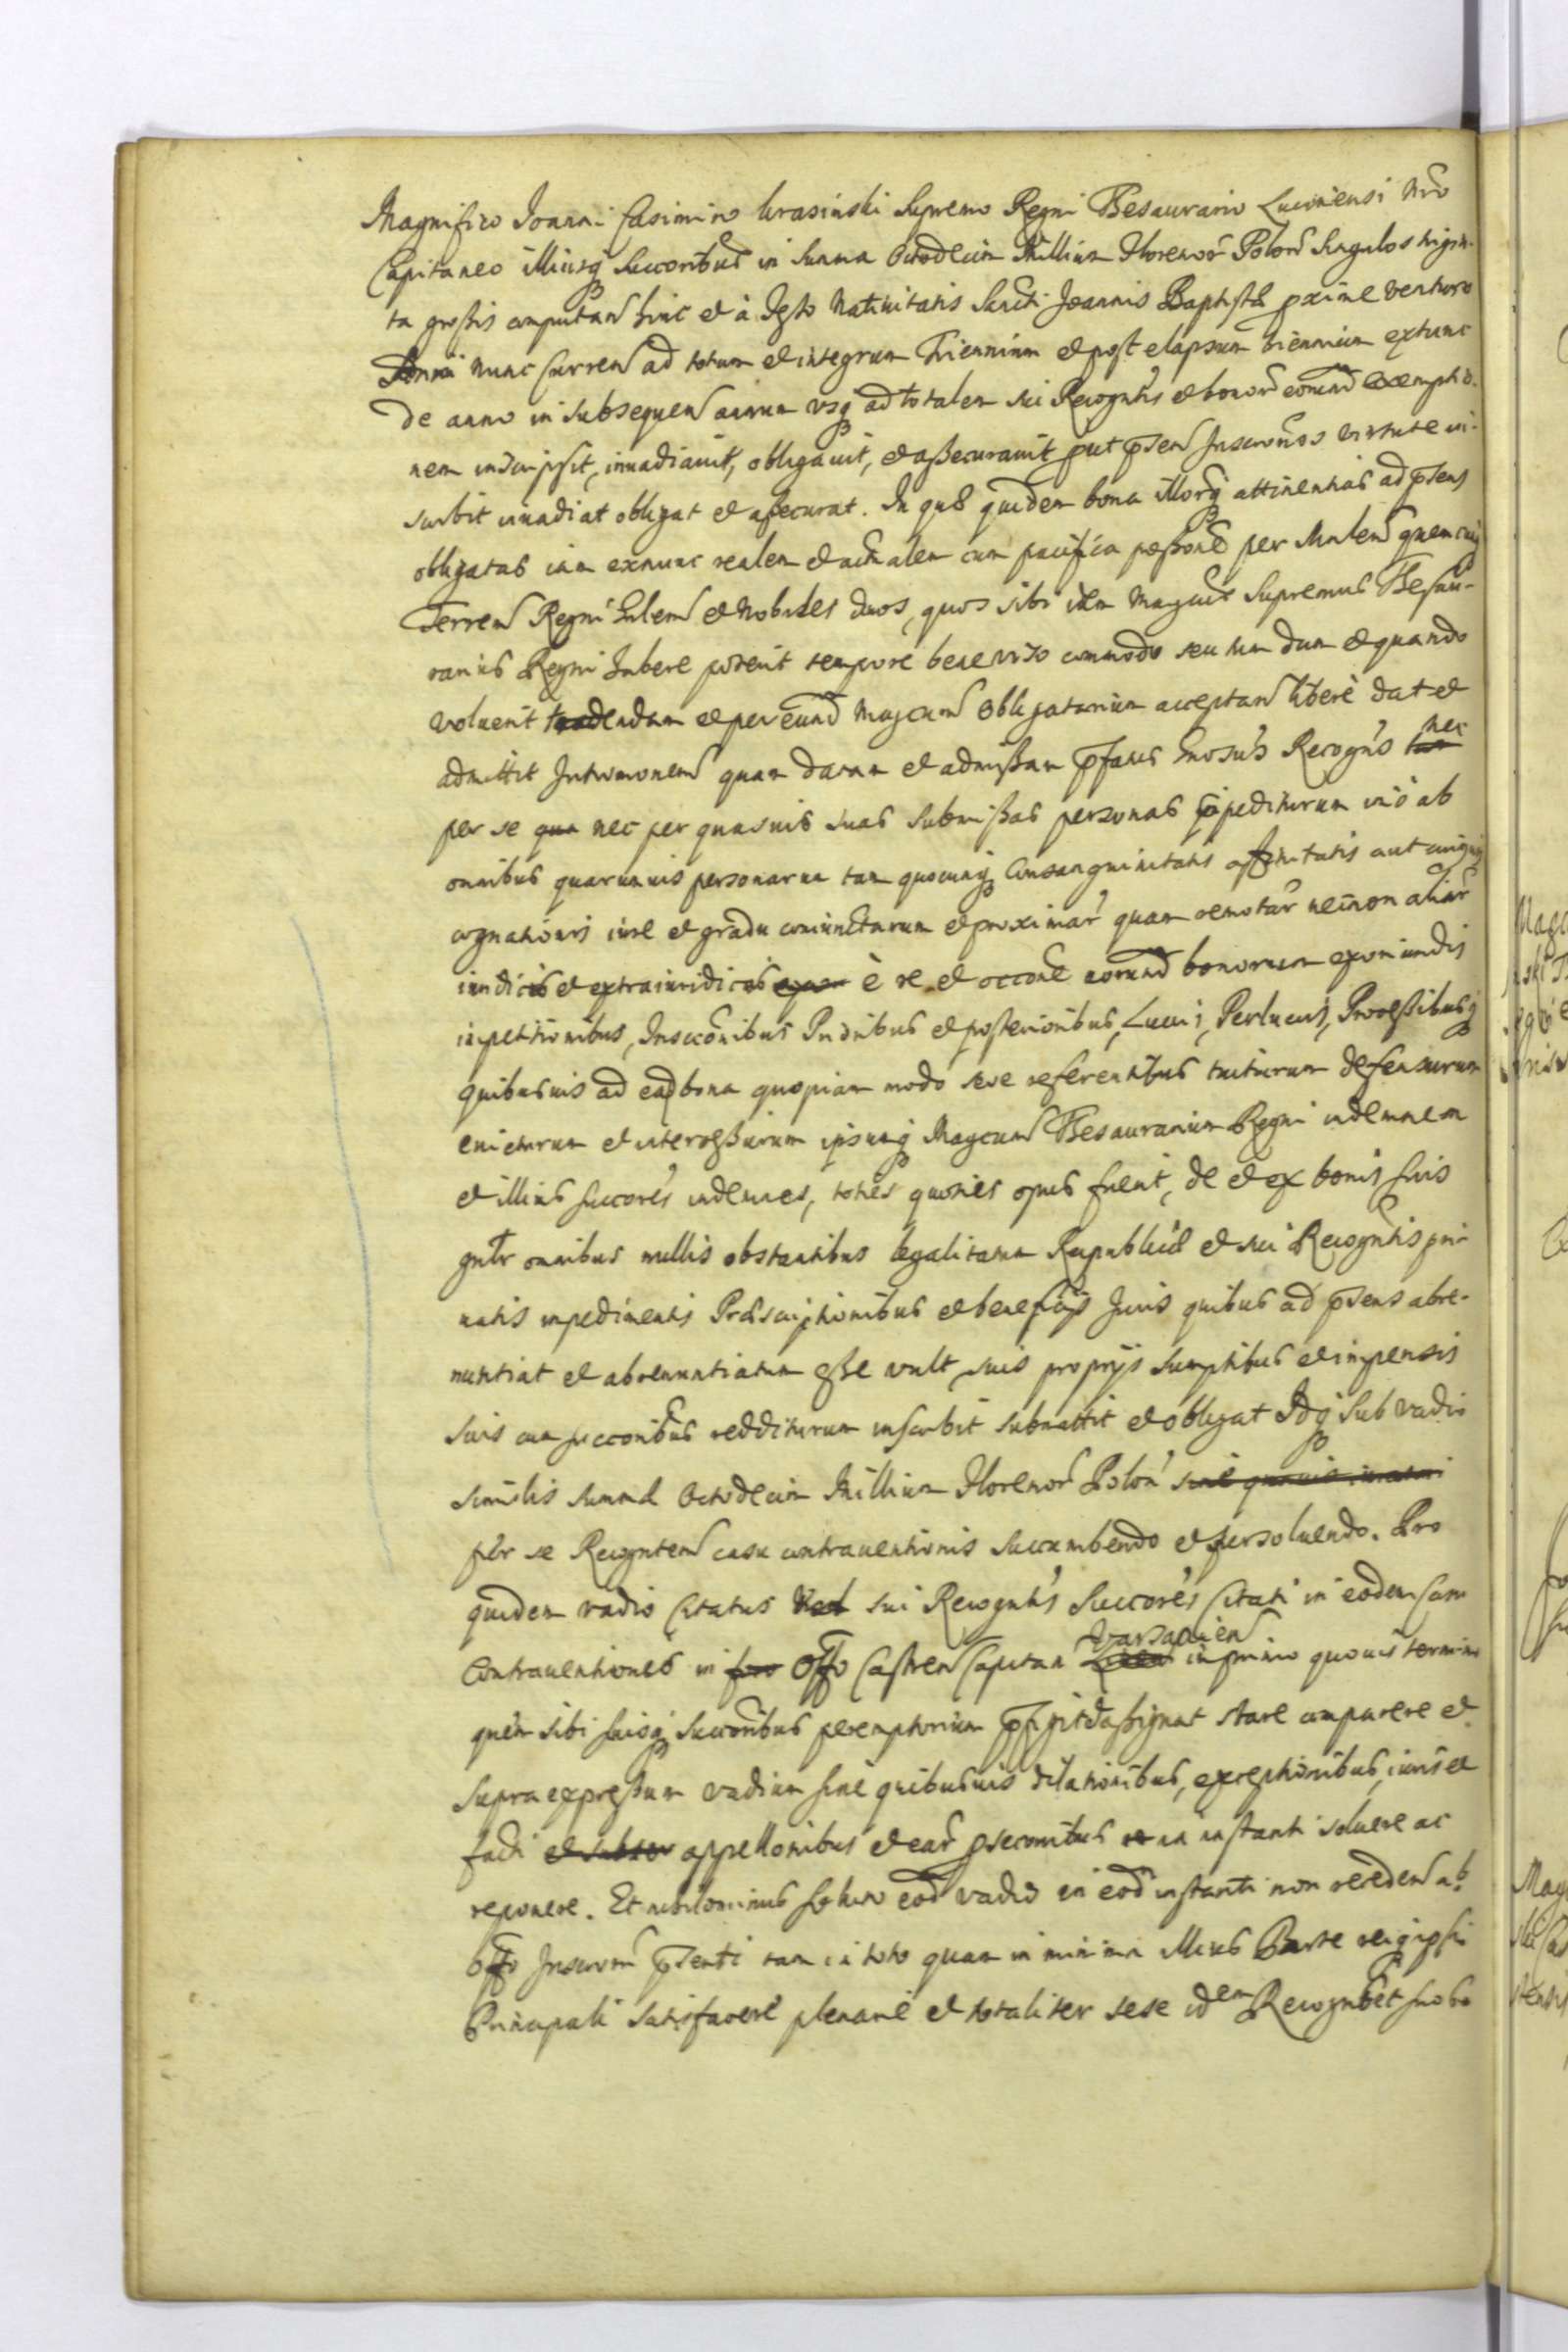 Magnifico Joanni Casimiro Krasinski Supremo Regni Thesaurario Luconensi Nro
Capitaneo illiusq Succoribus in Summa Octodecim Millium Florenor Polon Singulos trigin-
ta grossis computan hinc et à Festo Nativitatis Sancti Joannis Baptistæ pxime venturo
Anni nunc Curren ad totum et integrum Triennium et post elapsum triennium extunc
de anno in subsequen annum usq ad totalem sui Recogntis et bonor eorund exemptio-
nem inscripsit, invadiavit, obligavit, et assecuravit put psen Inscronis virtute in-
scribit invadiat obligat et assecurat. In quæ quidem bona illorq attinentias ad psens
obligatas iam exnunc realem et actualem cum pacifica possone per Minlem quemcunq
Terren Regni Gnlem et Nobiles duos, quos sibi idem Magcus Supremus Thesau-
rarius Regni Iubere poterit tempore bene viso commodo seu tum dum et quando
voluerit tradendam et per eund Magcum Obligatarium acceptan liberè dat et
admittit Intromonem quam datam et admissam pfatus Gnosus Recogns nec
per se nec per quasvis suas submissas personas impediturum imo ab
omnibus quarumvis personarum tam quocunq Consanguinitatis affinitatis aut cuiusvis
cognationis iure et gradu coniunctarum et proximar quam remotar necnon aliar
iuridicis et extraiuridicis è re et occone eorund bonorum exoriundis
impetitionibus, Inscronibus Prioribus et posterioribus, Lucris, Perlucris, Processibusq
quibusvis ad ead bona quopiam modo sese referentibus tuiturum defensurum
evicturum et intercessurum ipsumq Magcum Thesaurarium Regni indemnem
et illius succores indemnes, toties quoties opus fuerit, de et ex bonis suis
gnlr omnibus nullis obstantibus legalitatum Reipublicæ et sui Recogntis pri-
vatis impedimentis Præscriptionibus et beneficijs Juris quibus ad psens abre-
nuntiat et abrenuntiatum esse vult, suis proprijs sumptibus et impensis
suis cum succoribus redditurum inscribit submittit et obligat Idq Sub vadio
similis summæ Octodecim Millium Florenor Polon sine quavis
per se Recognten casu contraventionis succumbendo et persolvendo. Pro
quidem vadio Citatus Vel sui Recogntis Succores Citati in eodem Casu
Contraventionis in foro Offo Castren Capitan Varsavien in primo quovis termino
quem sibi suisq Succoribus peremptorium pfigit et assignat stare comparere et
supra expressum vadium sine quibusvis dilationibus, exceptionibus, iuris et
facti appellonibus et ear psecomibus in instanti solvere ac
reponere. Et nihilominus soluto eod vadio in eod instanti non receden ab
offo Inscronis psenti tam in toto quam in minima illius Parte reiq ipsi
Principali satisfacere plenarie et totaliter sese idem Recogn debet suo bo